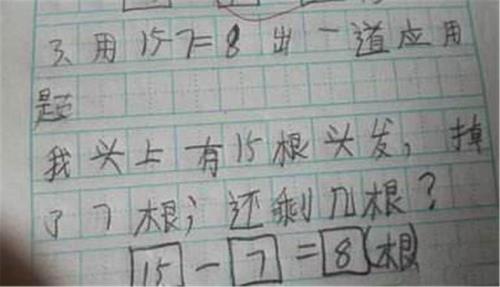 3、用15 7=8出一道应用
题
我头上有15根头发，掉
了7根；还剩几根？
15-7=8(根)